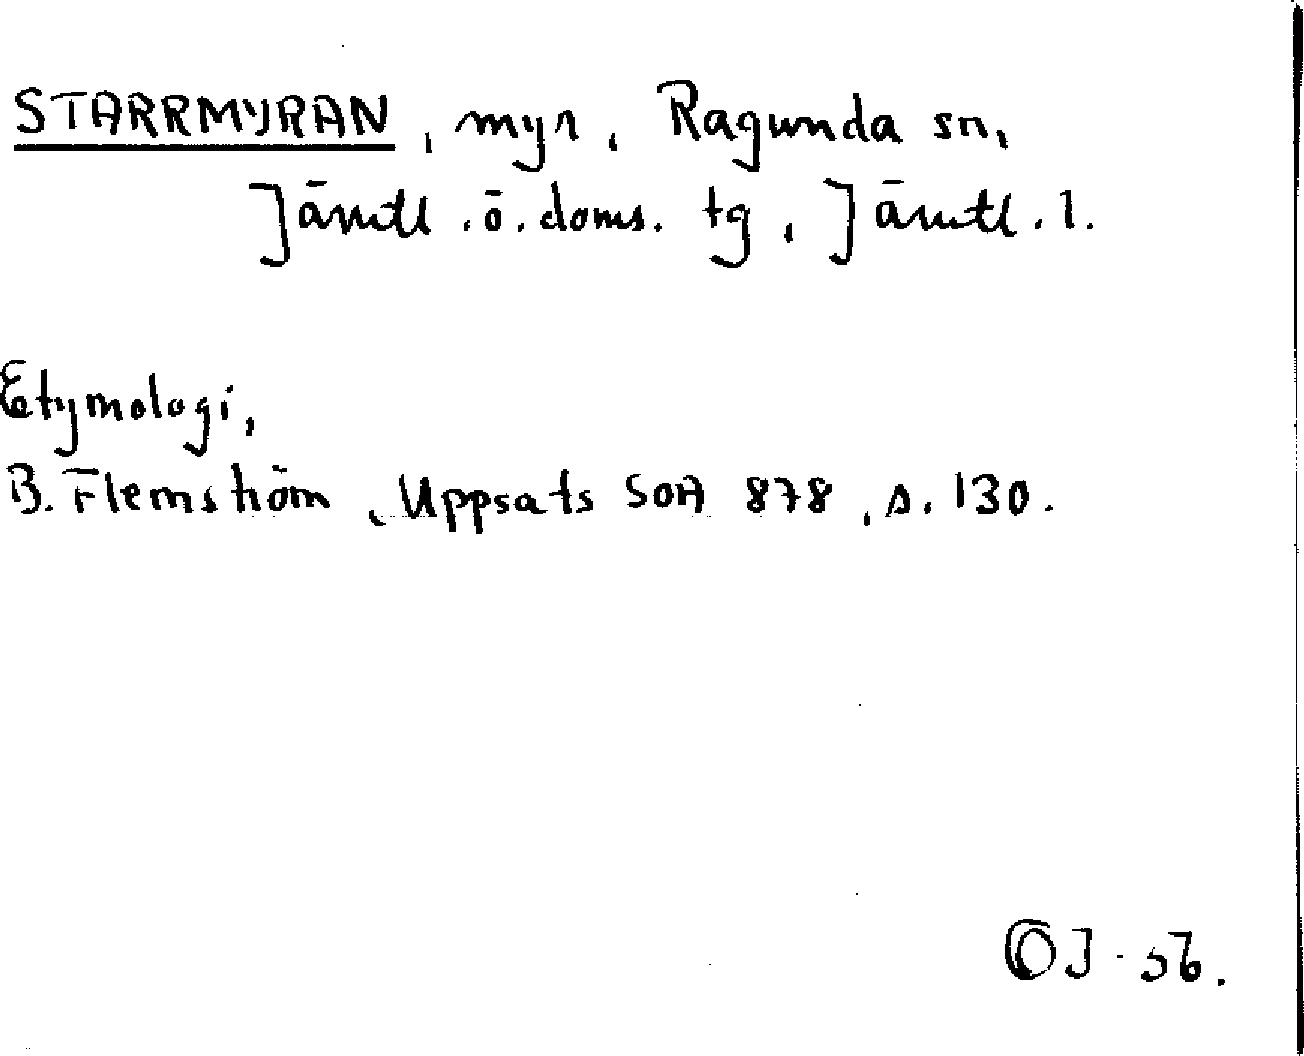 STARRMYRAN, myr, Ragunda sn,
Jämtl. ö. doms. tg, Jämtl. l.
Etymologi,
B. Flemström, Uppsats SOA 878, s. 130.
OJ-56.